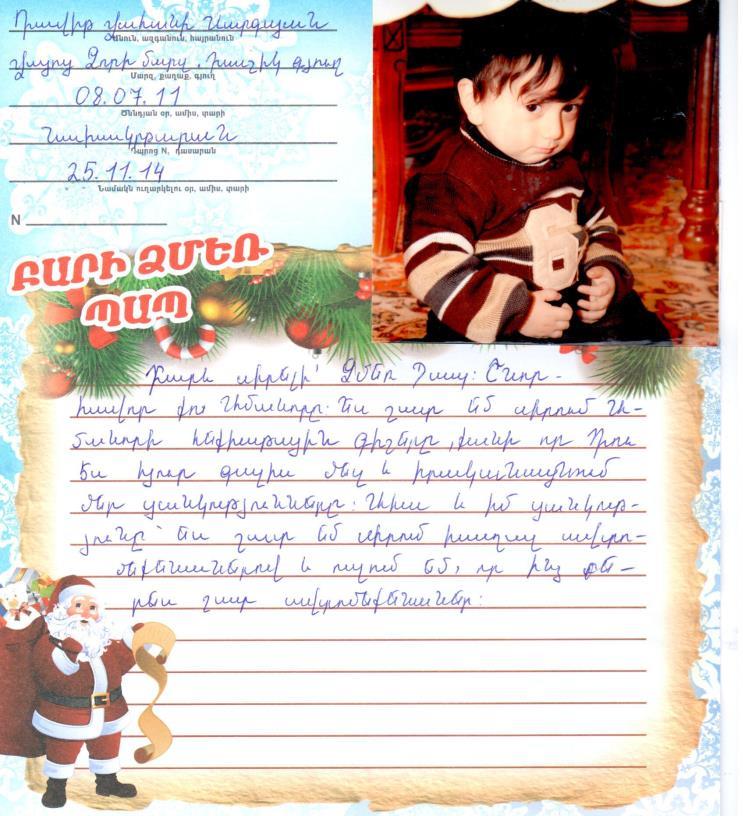 Դավիթ Վահանի Սարգսյան
Անուն, ազգանուն, հայրանուն
Վայոց Ձորի մարզ, Խաչիկ գյուղ
Մարզ, քաղաք, գյուղ
08.07.11
Ծննդյան օր, ամիս, տարի
Նախակրթարան
Դպրոց N, դասարան
25.11.14
Նամակն ուղարկելու օր, ամիս, տարի
N
ԲԱՐԻ ՁՄԵՌ
ՊԱՊ
Բարև սիրելի՛ Ձմեռ Պապ: Շնոր-
հավոր քո Նոր տարին: Ես շատ եմ սիրում
հեքիաթային գիշերը, քանի որ Դու
ես հյուր գալիս մեզ և իրականացնում
մեր ցանկությունները: Ահա և իմ ցանկութ-
յունը՝ ես շատ եմ սիրում խաղալ ավտո-
մեքենաներով և ուզում եմ, որ ինձ բե-
րես շատ ավտոմեքենաներ: